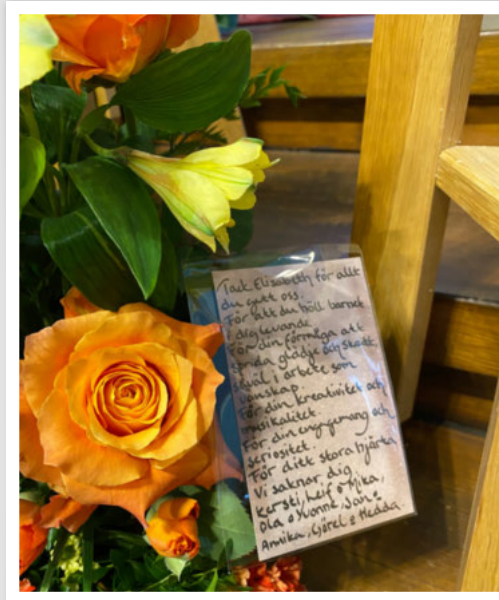 Tack Elisabeth för allt
du gett oss.
För att du höll barnet
i dig levande.
För din förmåga att
sprida glädje och stödt,
såväl i arbete som
vänskap.
För din kreativitet och
musikalitet.
För din engagemang och
seriositet.
För ditt stora hjärta
Vi saknar dig
Kersti, Leif o Mika,
Ola o Yvonne, Jan o
Annika, Görel o Hedda.